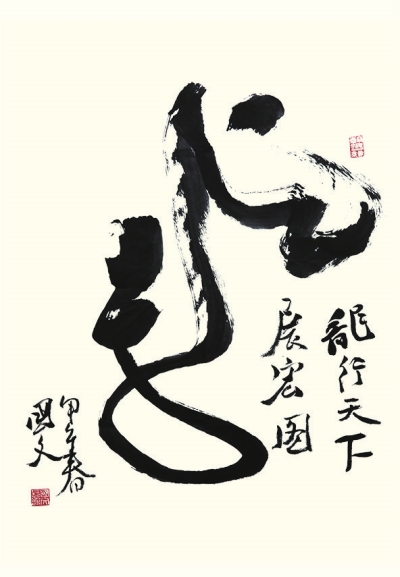 龍
龍行天下
展宏图
甲辰春
國文